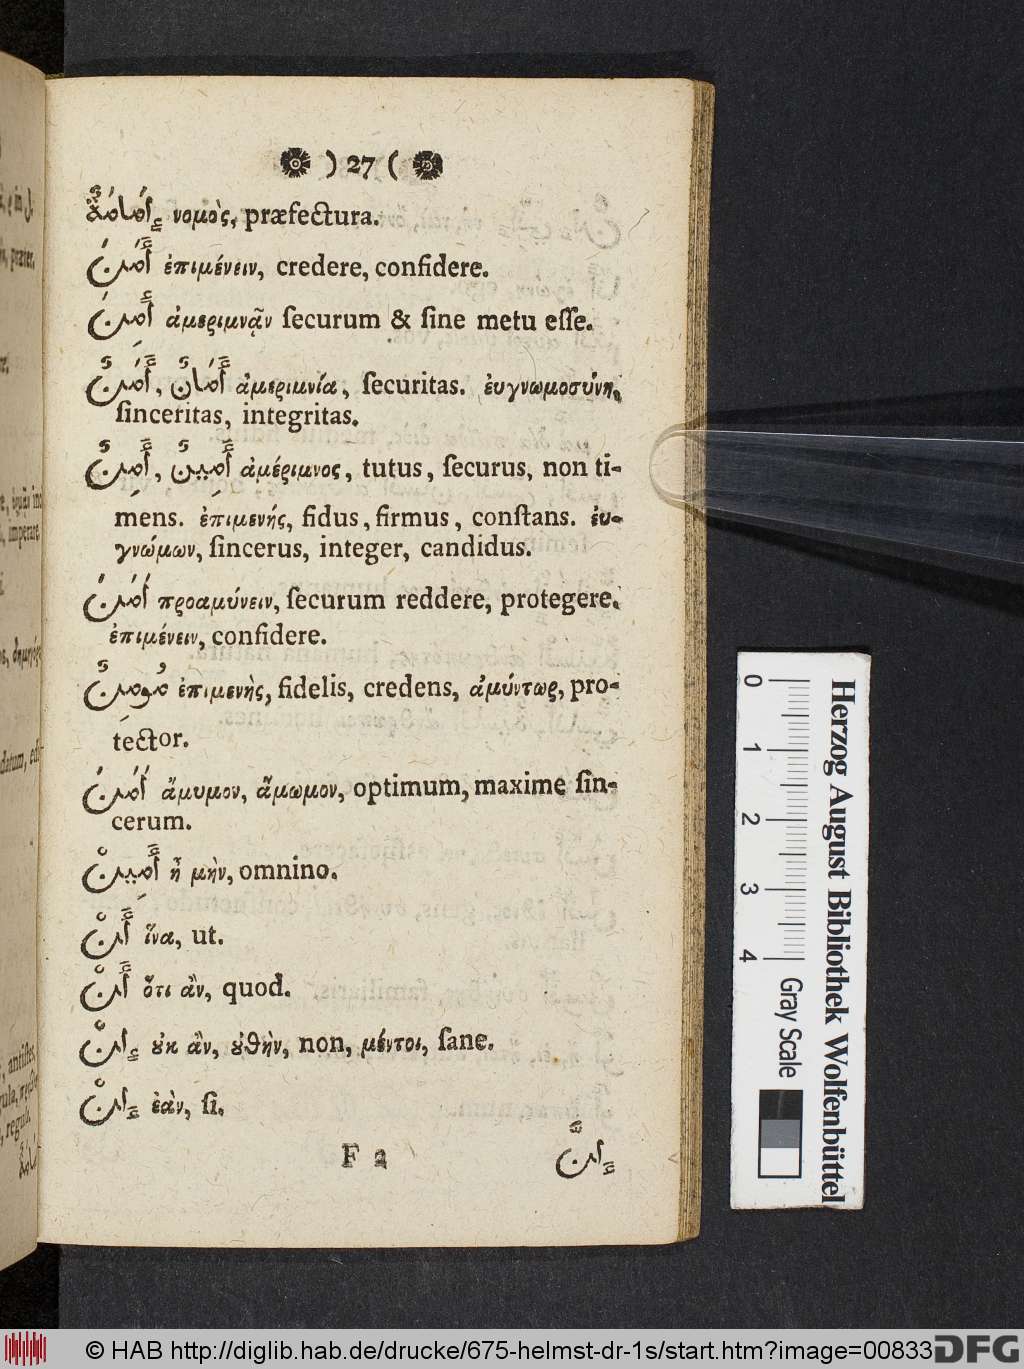 ) 27 (
إِمَامَةٌ νομὸς, præfectura.
أَمَنَ ἐπιμένειν, credere, confidere.
أَمِنَ ἀμεριμνᾷν ſecurum & ſine metu eſſe.
أَمَنٌ, أَمَانٌ ἀμεριμνία, ſecuritas. ἐυγνωμοσύνη,
ſinceritas, integritas.
أَمِنٌ, أَمِينٌ ἀμέριμνος, tutus, ſecurus, non ti-
mens. ἐπιμενής, fidus, firmus, conſtans. ἐυ-
γνώμων, ſincerus, integer, candidus.
اَمَنَ προαμύνειν, ſecurum reddere, protegere.
ἐπιμένειν, confidere.
مُومِنٌ ἐπιμενὴς, fidelis, credens, ἀμύντωρ, pro-
tector.
اَمَنَ ἄμυμον, ἄμωμον, optimum, maxime ſin-
cerum.
أَمِينْ ἦ μὴν, omnino.
أَنْ ἵνα, ut.
أَنْ ὅτι ἂν, quod.
إِنْ ȣκ ἂν, ȣθὴν, non, μέντοι, ſane.
إِنْ ἐὰν, ſi.
F 2
إِنَّ
Herzog August Bibliothek Wolfenbüttel
0 1 2 3 4
Gray Scale
© HAB http://diglib.hab.de/drucke/675-helmst-dr-1s/start.htm?image=00833
DFG